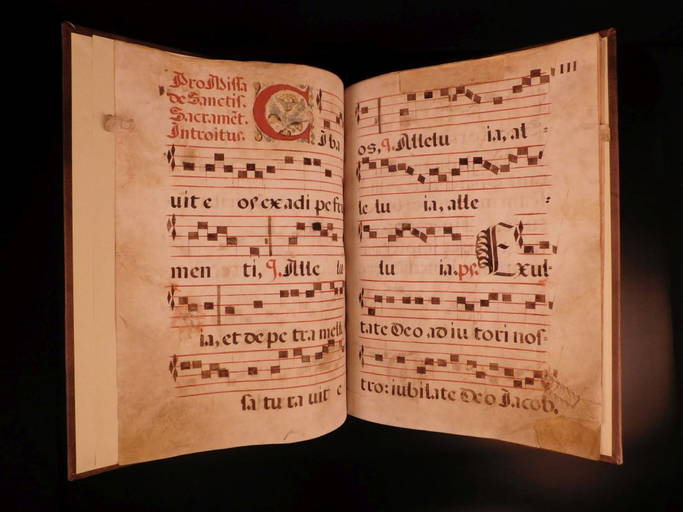 Pro Missa
de Sanctis.
Sacramēt.
Introitus.
Ciba
uit e os ex adi pe fru
men ti, ℟. Alle lu
ia, et de pe tra mell
sa tu ra uit e
III
os, ℟. Allelu ia, al -
le lu ia, alle -
lu ia. ps. Exul-
tate Deo ad iu tori nos-
tro: iubilate Deo Jacob.